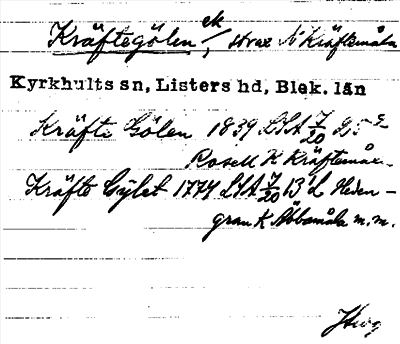 Kräftegölen ek, strax N Kräftemåla
Kyrkhults sn, Listers hd, Blek. län
Kräfte Gölen 1839 LSA J/20 25
Rosell K Kräftemåla
Kräfte Gylet 1774 LSA J/20 13 L Heden-
gran K Abbamåla m.m.